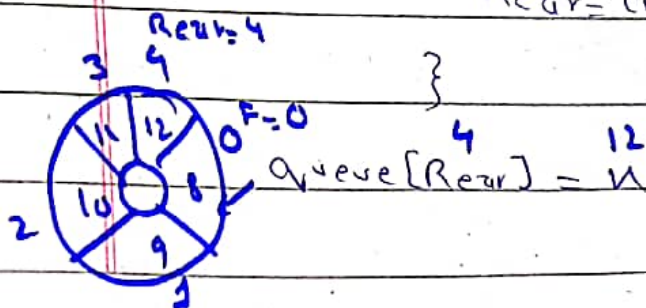 Rear=4
3 4 }
11 12 0 F=0 4 12
10 8 Queue[Rear] = x
2 9
1